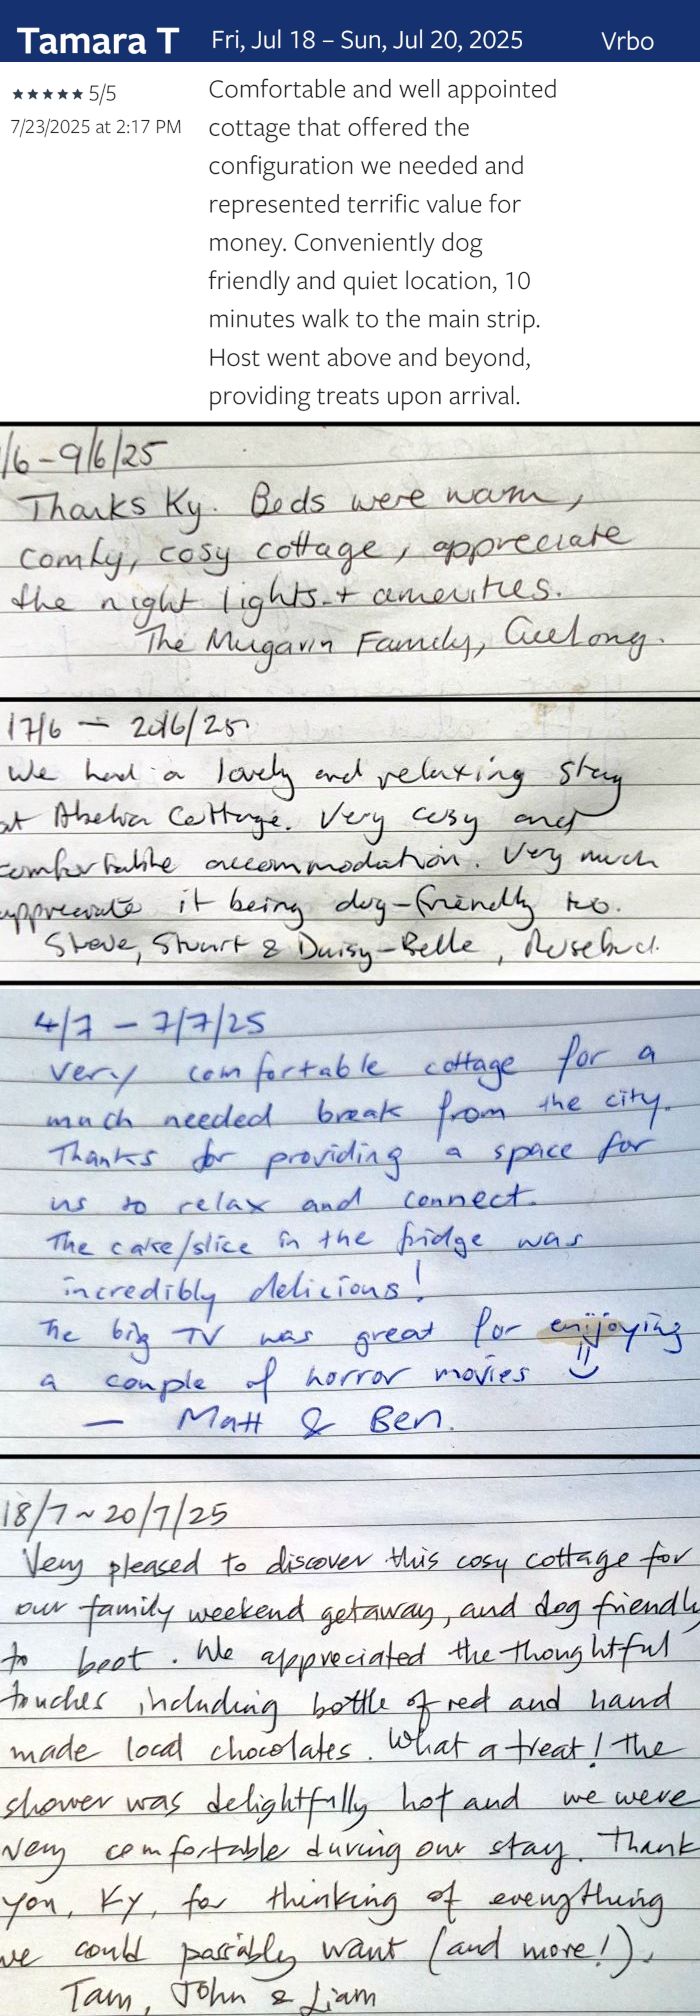 Tamara T Fri, Jul 18 – Sun, Jul 20, 2025 Vrbo
★★★★★ 5/5
7/23/2025 at 2:17 PM
Comfortable and well appointed
cottage that offered the
configuration we needed and
represented terrific value for
money. Conveniently dog
friendly and quiet location, 10
minutes walk to the main strip.
Host went above and beyond,
providing treats upon arrival.
/6 - 9/6/25
Thanks Ky. Beds were warm,
comfy, cosy cottage, appreciate
the night lights + amenities.
The Mugavin Family, Geelong.
17/6 — 20/6/25
We had a lovely and relaxing stay
at Abelia Cottage. Very cosy and
comfortable accommodation. Very much
appreciate it being dog-friendly too.
Steve, Stuart & Daisy-Belle, Rosebud.
4/7 - 7/7/25
Very comfortable cottage for a
much needed break from the city.
Thanks for providing a space for
us to relax and connect.
The cake/slice in the fridge was
incredibly delicious!
The big TV was great for enjoying
a couple of horror movies
— Matt & Ben.
18/7 ~ 20/7/25
Very pleased to discover this cosy cottage for
our family weekend getaway, and dog friendly
to boot. We appreciated the thoughtful
touches including bottle of red and hand
made local chocolates. What a treat! The
shower was delightfully hot and we were
very comfortable during our stay. Thank
you, Ky, for thinking of everything
we could possibly want (and more!).
Tam, John & Liam